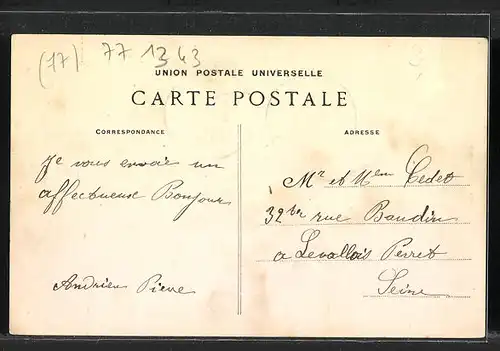 (17) 77 1343
UNION POSTALE UNIVERSELLE
CARTE POSTALE
CORRESPONDANCE
ADRESSE
Je vous envoie un
affectueuse Bonjour
Andrien Pierre
Mr et Mem Cedet
32 ter rue Baudin
a Levallois Perret
Seine